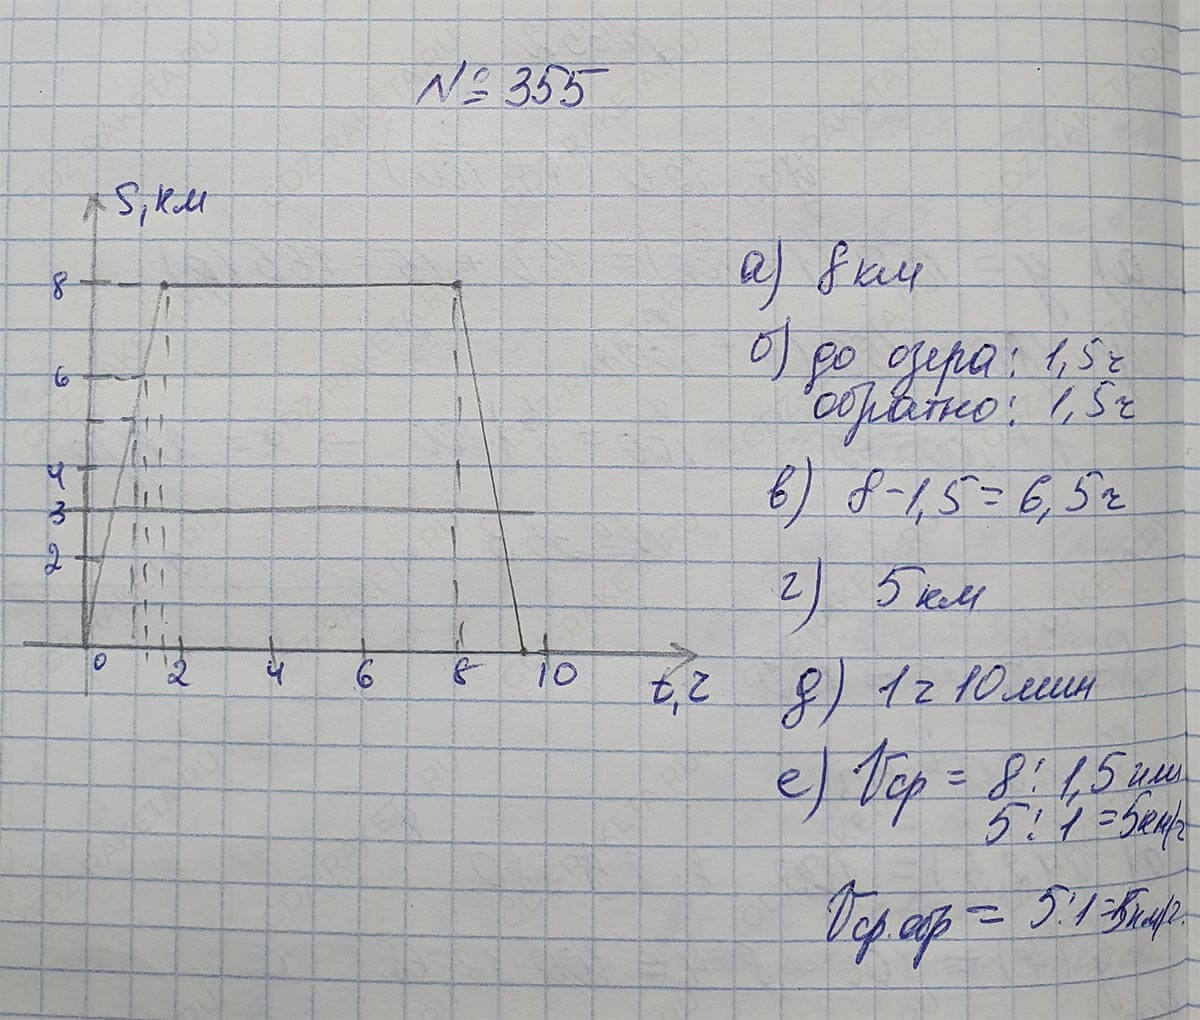 № 355
S, км
8
6
4
3
2
0 2 4 6 8 10 t, ч
а) 8 км
б) до озера: 1,5 ч
обратно: 1,5 ч
в) 8 - 1,5 = 6,5 ч
г) 5 км
д) 1 ч 10 мин
е) Vср = 8 : 1,5 или
5 : 1 = 5 км/ч
Vср.обр = 5 : 1 = 5 км/ч.